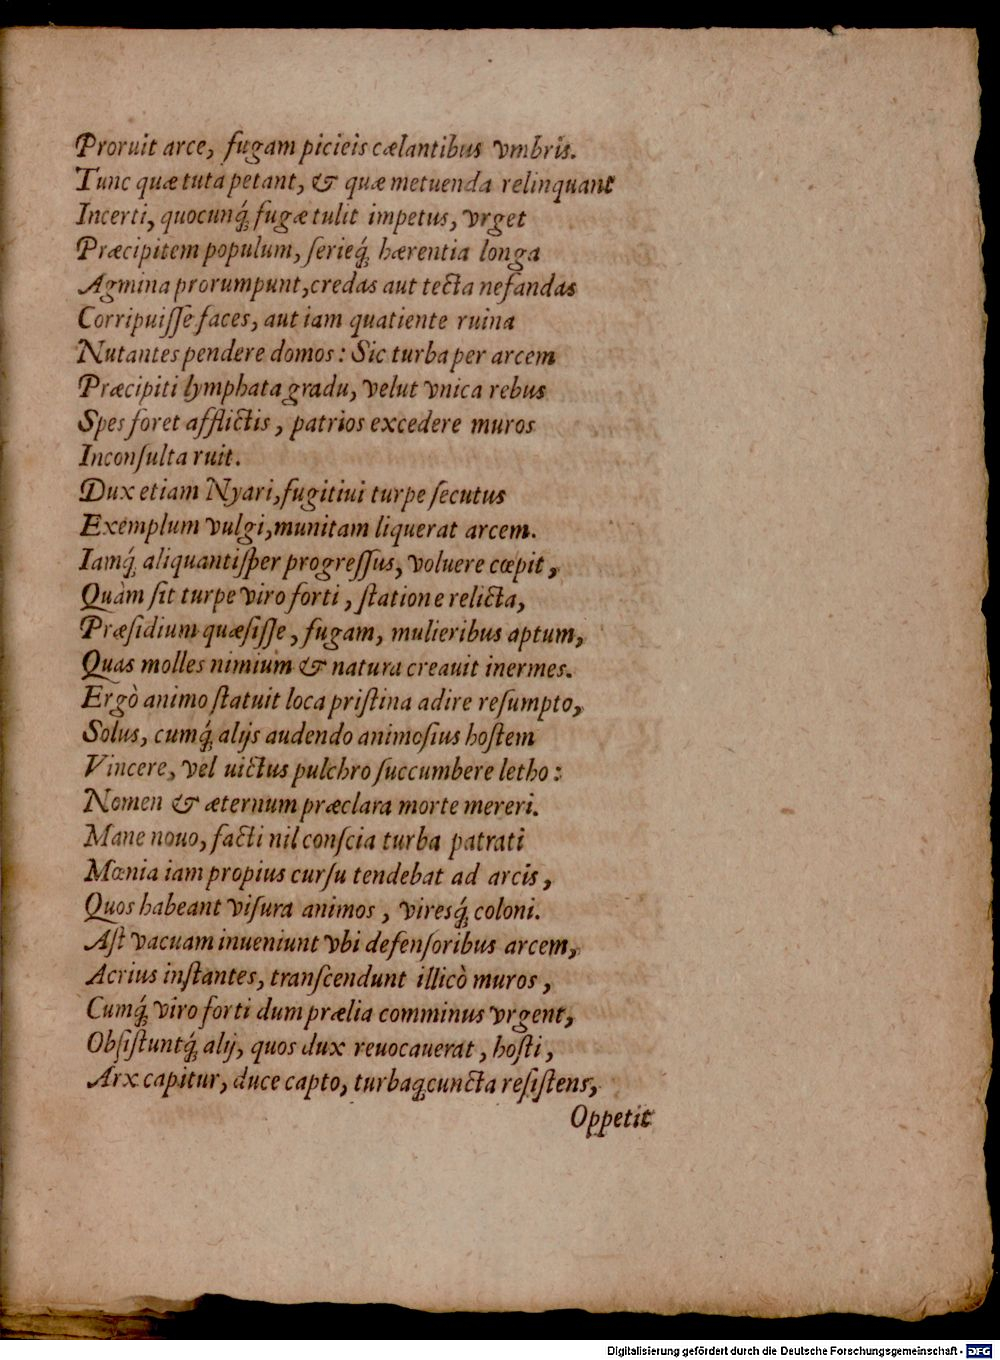 Proruit arce, fugam picieis cælantibus vmbris.
Tunc quæ tuta petant, & quæ metuenda relinquant
Incerti, quocunq́; fugæ tulit impetus, vrget
Præcipitem populum, ſerieq́; hærentia longa
Agmina prorumpunt, credas aut tecta nefandas
Corripuiſſe faces, aut iam quatiente ruina
Nutantes pendere domos: Sic turba per arcem
Præcipiti lymphata gradu, velut vnica rebus
Spes foret afflictis, patrios excedere muros
Inconſulta ruit.
Dux etiam Nyari, fugitiui turpe ſecutus
Exemplum vulgi, munitam liquerat arcem.
Iamq́; aliquantiſper progreſſus, voluere cœpit,
Quàm ſit turpe viro forti, ſtatione relicta,
Præſidium quæſiſſe, fugam, mulieribus aptum,
Quas molles nimium & natura creauit inermes.
Ergò animo ſtatuit loca priſtina adire reſumpto,
Solus, cumq́; alijs audendo animoſius hoſtem
Vincere, vel uictus pulchro ſuccumbere letho:
Nomen & æternum præclara morte mereri.
Mane nouo, facti nil conſcia turba patrati
Mœnia iam propius curſu tendebat ad arcis,
Quos habeant viſura animos, viresq́; coloni.
Aſt vacuam inueniunt vbi defenſoribus arcem,
Acrius inſtantes, tranſcendunt illicò muros,
Cumq́; viro forti dum prælia comminus vrgent,
Obſiſtuntq́; alij, quos dux reuocauerat, hoſti,
Arx capitur, duce capto, turbaq; cuncta reſiſtens,
Oppetit
Digitalisierung gefördert durch die Deutsche Forschungsgemeinschaft - DFG